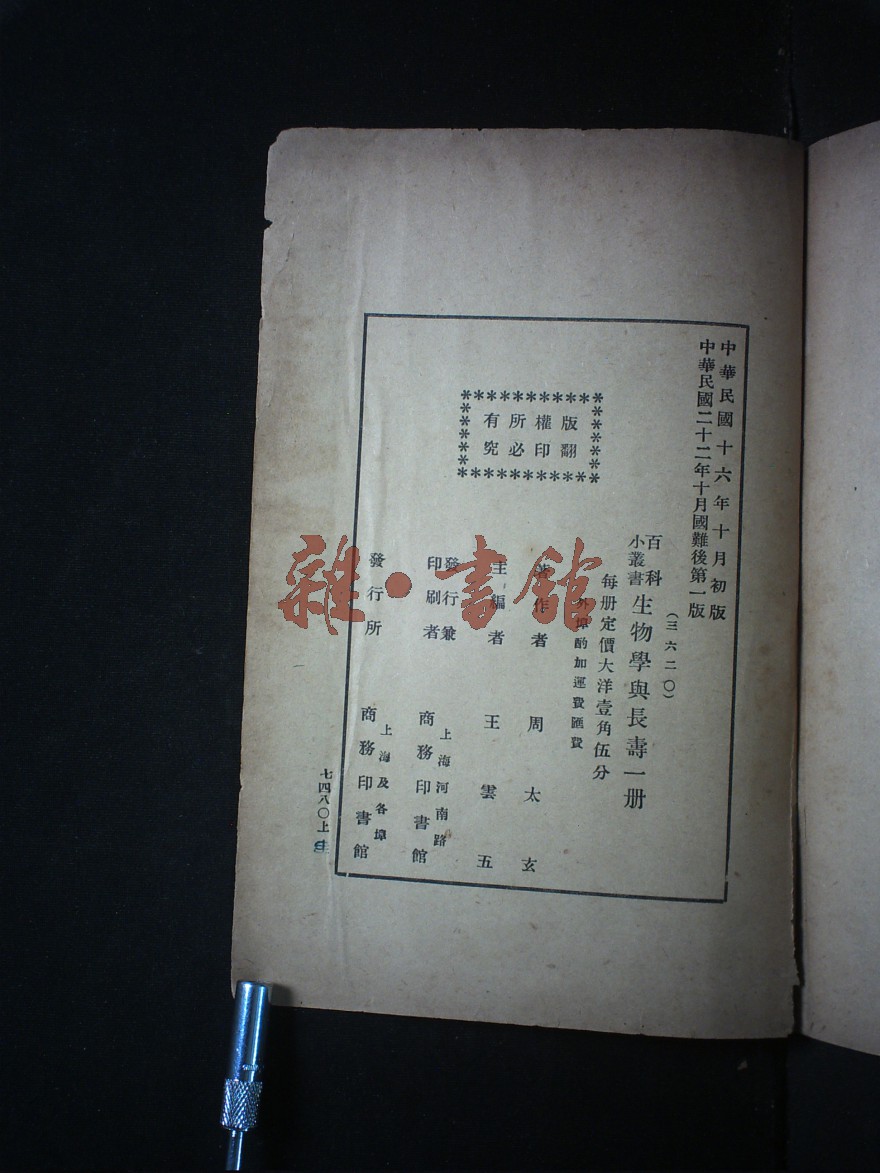 中華民國十六年十月初版
中華民國二十二年十月國難後第一版
(三六二〇)
百科
小叢書
生物學與長壽一册
每册定價大洋壹角伍分
外埠酌加運費匯費
著作者 周太玄
主編者 王雲五
發行兼
印刷者
上海河南路
商務印書館
發行所
上海及各埠
商務印書館
版權所有
翻印必究
七四八〇上
雜·書館